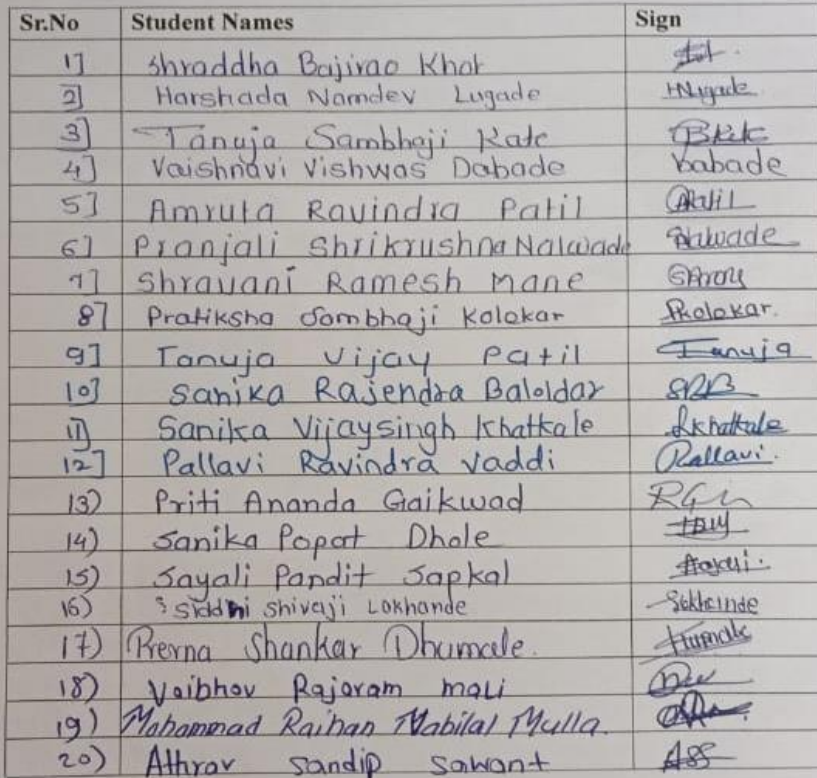 Sr.No Student Names Sign
1] Shraddha Bajirao Khot
2] Harshada Namdev Lugade HLugade
3] Tanuja Sambhaji Kate
4] Vaishnavi Vishwas Dabade Dabade
5] Amruta Ravindra Patil APatil
6] Pranjali Shrikrushna Nalwade Nalwade
7] Shravani Ramesh Mane
8] Pratiksha Sambhaji Kolekar PKolekar.
9] Tanuja Vijay Patil Tanuja
10] Sanika Rajendra Baloldar SRB
11] Sanika Vijaysingh Khatkale SKhatkale
12] Pallavi Ravindra Vaddi Pallavi.
13) Priti Ananda Gaikwad
14) Sanika Popat Dhole
15) Sayali Pandit Sapkal
16) Siddhi Shivaji Lokhande
17) Prerna Shankar Dhumale.
18) Vaibhav Rajaram mali
19) Mohammad Raihan Nabilal Mulla.
20) Athrav Sandip Sawant ASS